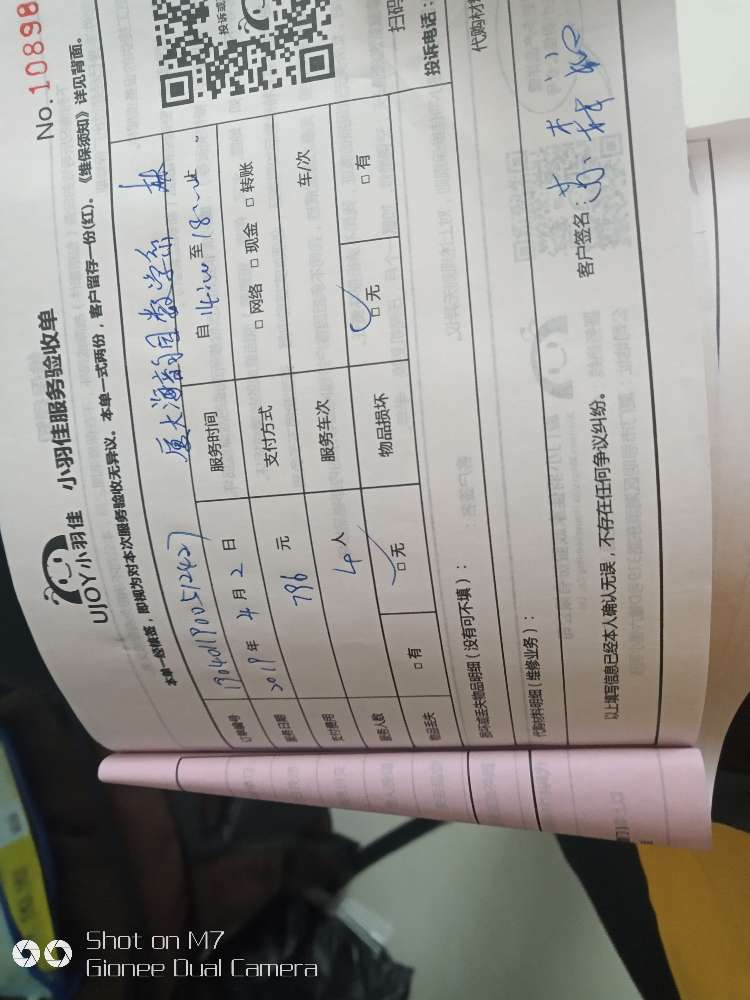 No.10898
UJOY小羽佳 小羽佳服务验收单
本单一经核签，即视为对本次服务验收无异议。本单一式两份，客户留存一份(红)。《维保须知》详见背面。
订单编号 厦大海韵园数学系 林
服务日期 2019年4月2日 服务时间 自 至
支付费用 796元 支付方式 □网络 □现金 □转账
服务人数 4人 服务车次 车/次
物品丢失 □有 □无 物品损坏 □无 □有
损坏或丢失物品明细（没有可不填）：
代购材料明细（维修业务）：
代购材
以上填写信息已经本人确认无误，不存在任何争议纠纷。
客户签名：
扫码
投诉电话：
投诉或
Shot on M7
Gionee Dual Camera